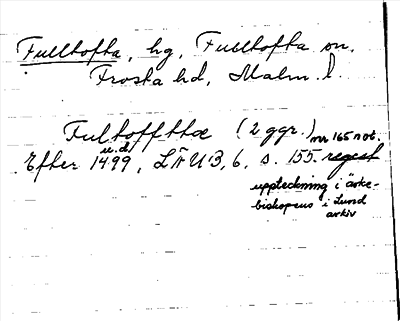 Fulltofta, hg, Fulltofta sn,
Frosta hd, Malm. l.
Fultofftæ (2 ggr.) nr 165 not.
u.d.
Efter 1499, LÄUB, 6, s. 155. regest
uppteckning i ärke-
biskopens i Lund
arkiv